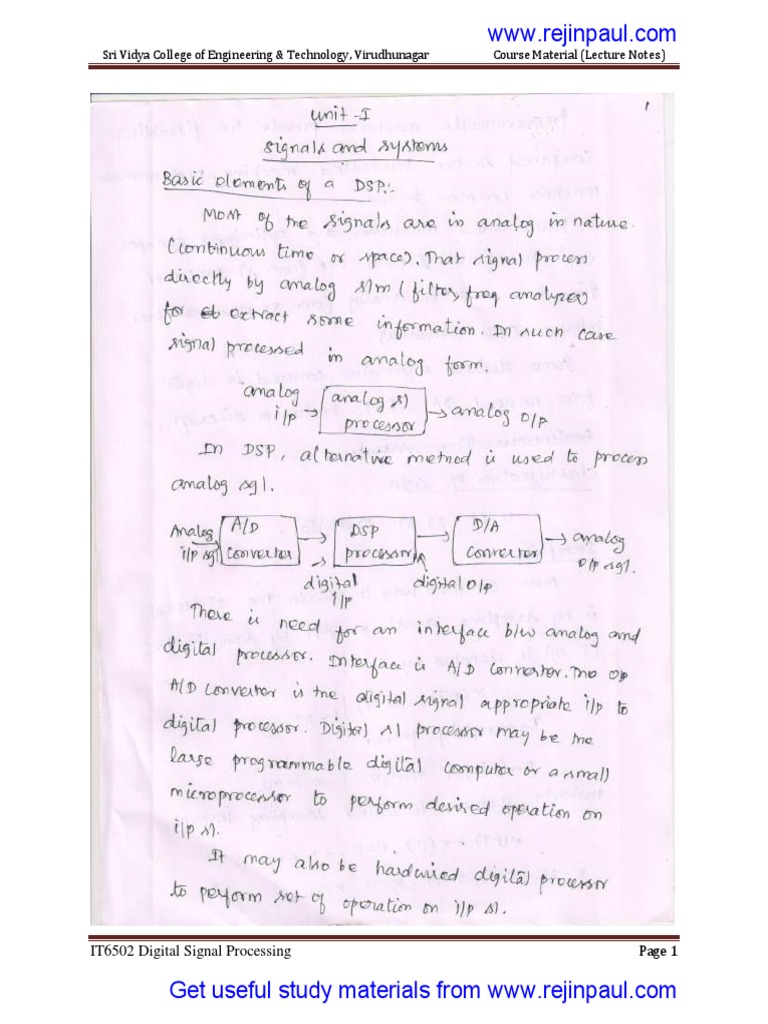 www.rejinpaul.com
Sri Vidya College of Engineering & Technology, Virudhunagar Course Material (Lecture Notes)
1
Unit-I
Signals and systems
Basic elements of a DSP:-
Most of the signals are in analog in nature.
(continuous time or space). That signal process
directly by analog s/m (filter, freq analyzer)
for extract some information. In such case
signal processed in analog form.
analog i/p → analog sl processor → analog o/p
In DSP, alternative method is used to process
analog sgl.
Analog i/p sgl A/D converter → DSP processor → D/A converter → analog o/p sgl.
→ digital i/p digital o/p
There is need for an interface b/w analog and
digital processor. Interface is A/D converter. The o/p
A/D converter is the digital signal appropriate i/p to
digital processor. Digital sl processor may be the
large programmable digital computer or a small
microprocessor to perform desired operation on
i/p sl.
It may also be hardwired digital processor
to perform set of operation on i/p sl.
IT6502 Digital Signal Processing Page 1
Get useful study materials from www.rejinpaul.com